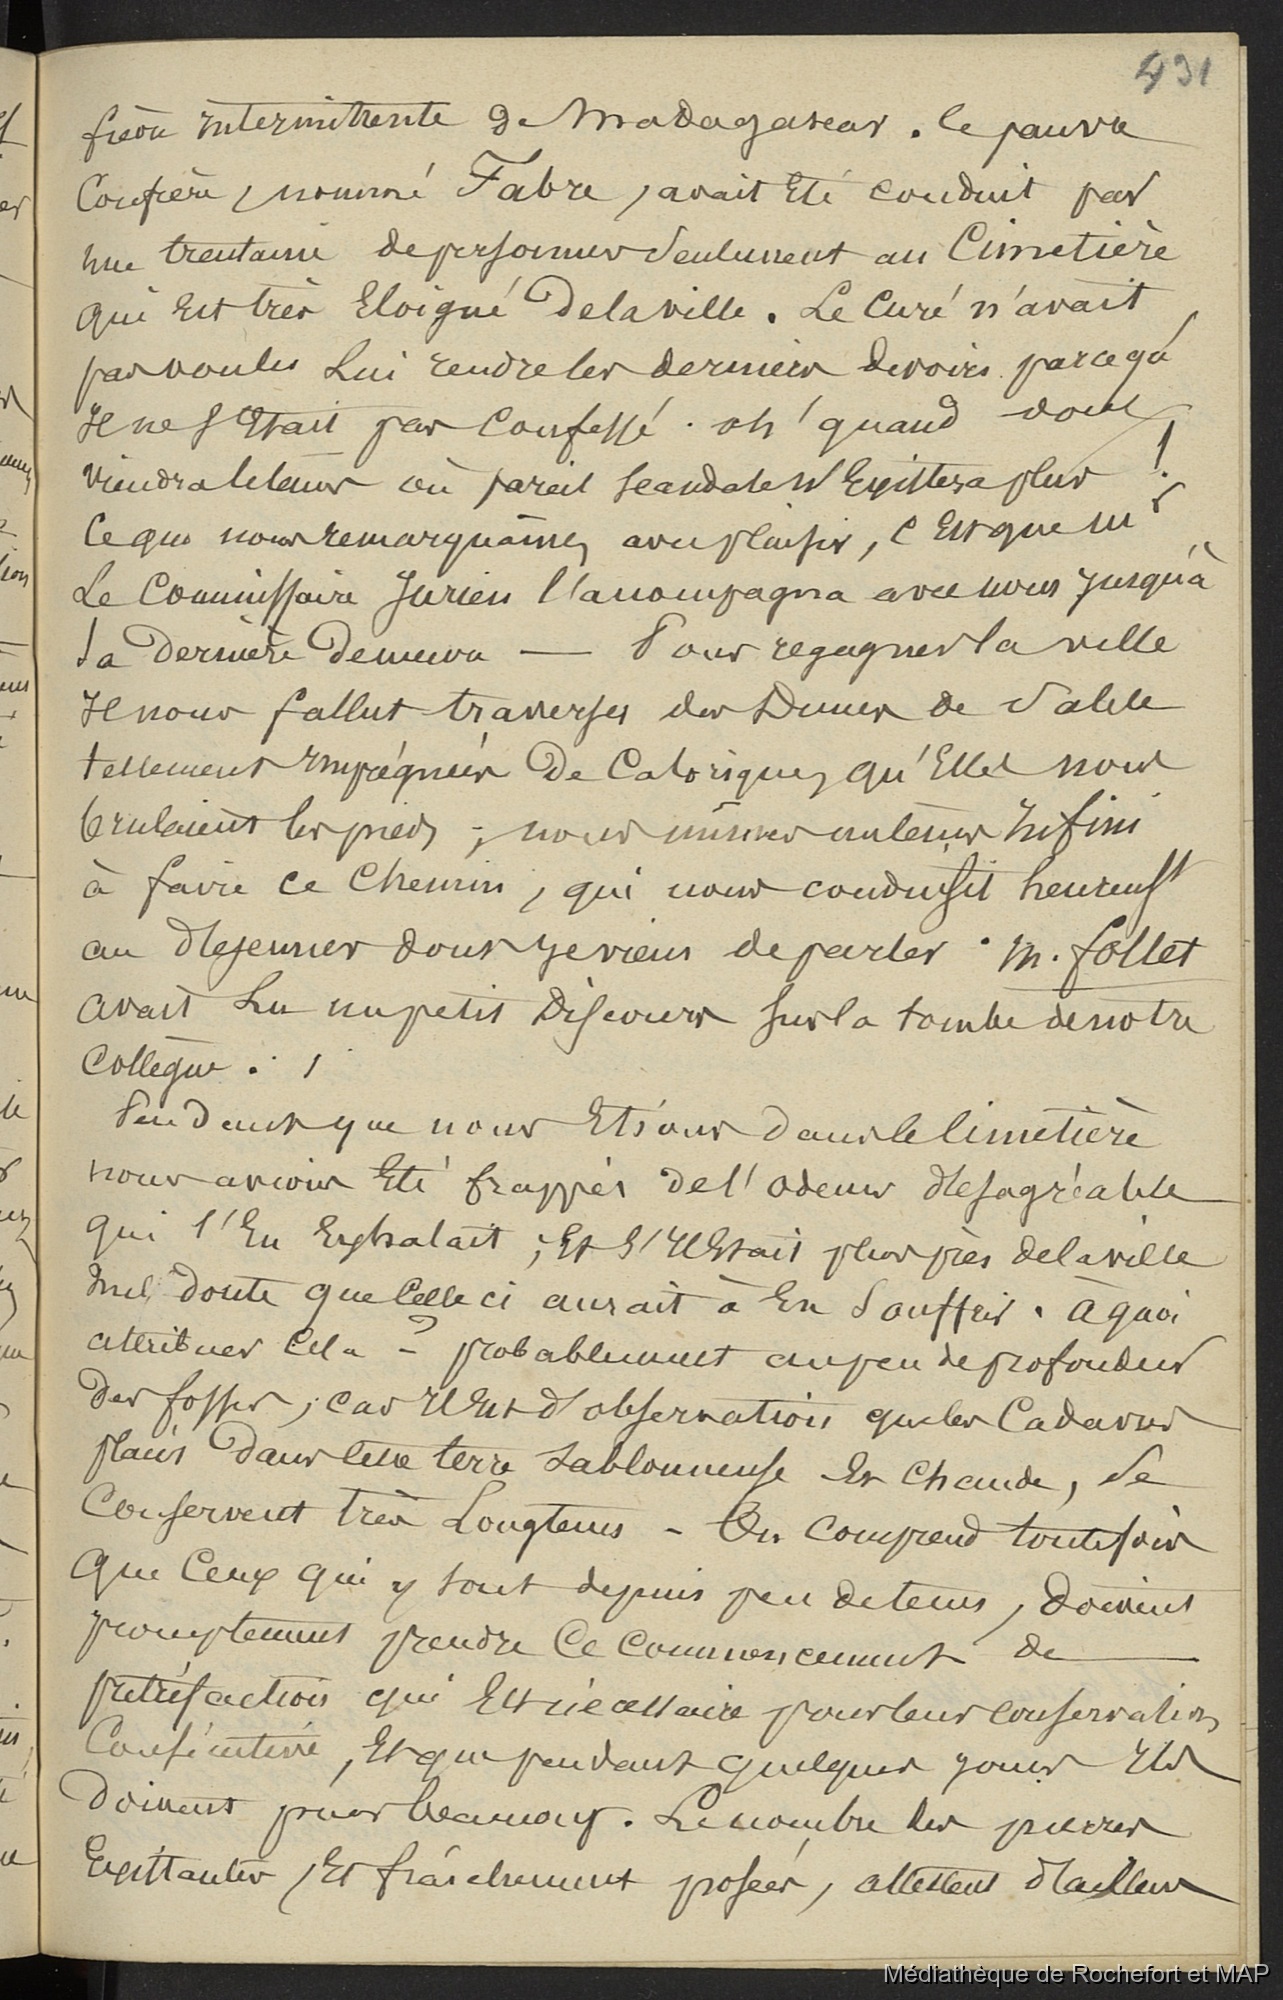 431
fièvre intermittente de Madagascar. le pauvre
Confrère, nommé Fabre, avait été conduit par
une trentaine de personnes seulement au Cimetière
qui est très Eloigné de la ville. Le Curé n'avait
pas voulu Lui rendre les derniers devoirs parcequ'
Il ne s'Etait pas Confessé. oh! quand donc
viendra le tems où pareil scandale n'Existera plus !
Ce que nous remarquâmes avec plaisir, c'Est que Mr
Le Commissaire Jurien l'accompagna avec nous Jusqu'à
sa Dernière Demeure — Pour regagner la ville
Il nous fallut traverser des Dunes de sable
tellement Imprégnées de Calorique, qu'Elles nous
brulaient les pieds ; nous mimes un tems Infini
à faire ce Chemin, qui nous conduisit heureust
au déjeuner dont Je viens de parler. M. follet
avait Lu un petit Discours sur la tombe de notre
Collègue. /
Pendant que nous Etions dans le Cimetière
nous avions Eté frappés de l'odeur désagréable
qui s'En Exhalait ; Et s'Il Etait plus près de la ville
Nul doute que Celle ci aurait à En Souffrir. à quoi
attribuer Cela ? - probablement au peu de profondeur
des fosses ; car Il Est d'observation que les Cadavres
placés dans une terre sablonneuse Et chaude, se
Conservent très Longtems - On comprend toutefois
que Ceux qui y sont depuis peu de tems, doivent
promptement prendre Ce commencement de —
putréfaction qui Est nécessaire pour leur conservation
Consécutive, Et que pendant quelques jours Ils
doivent puer beaucoup. Le nombre des pierres
Existantes, Et fraîchement posées, attestent d'ailleurs
Médiathèque de Rochefort et MAP